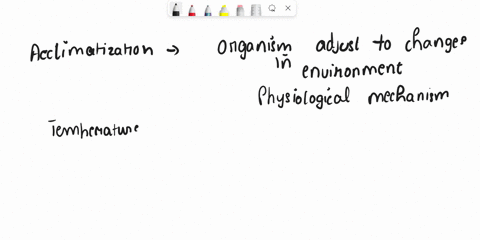 Acclimatization → Organism adjust to changes
in
environment
Physiological mechanism
Temperature